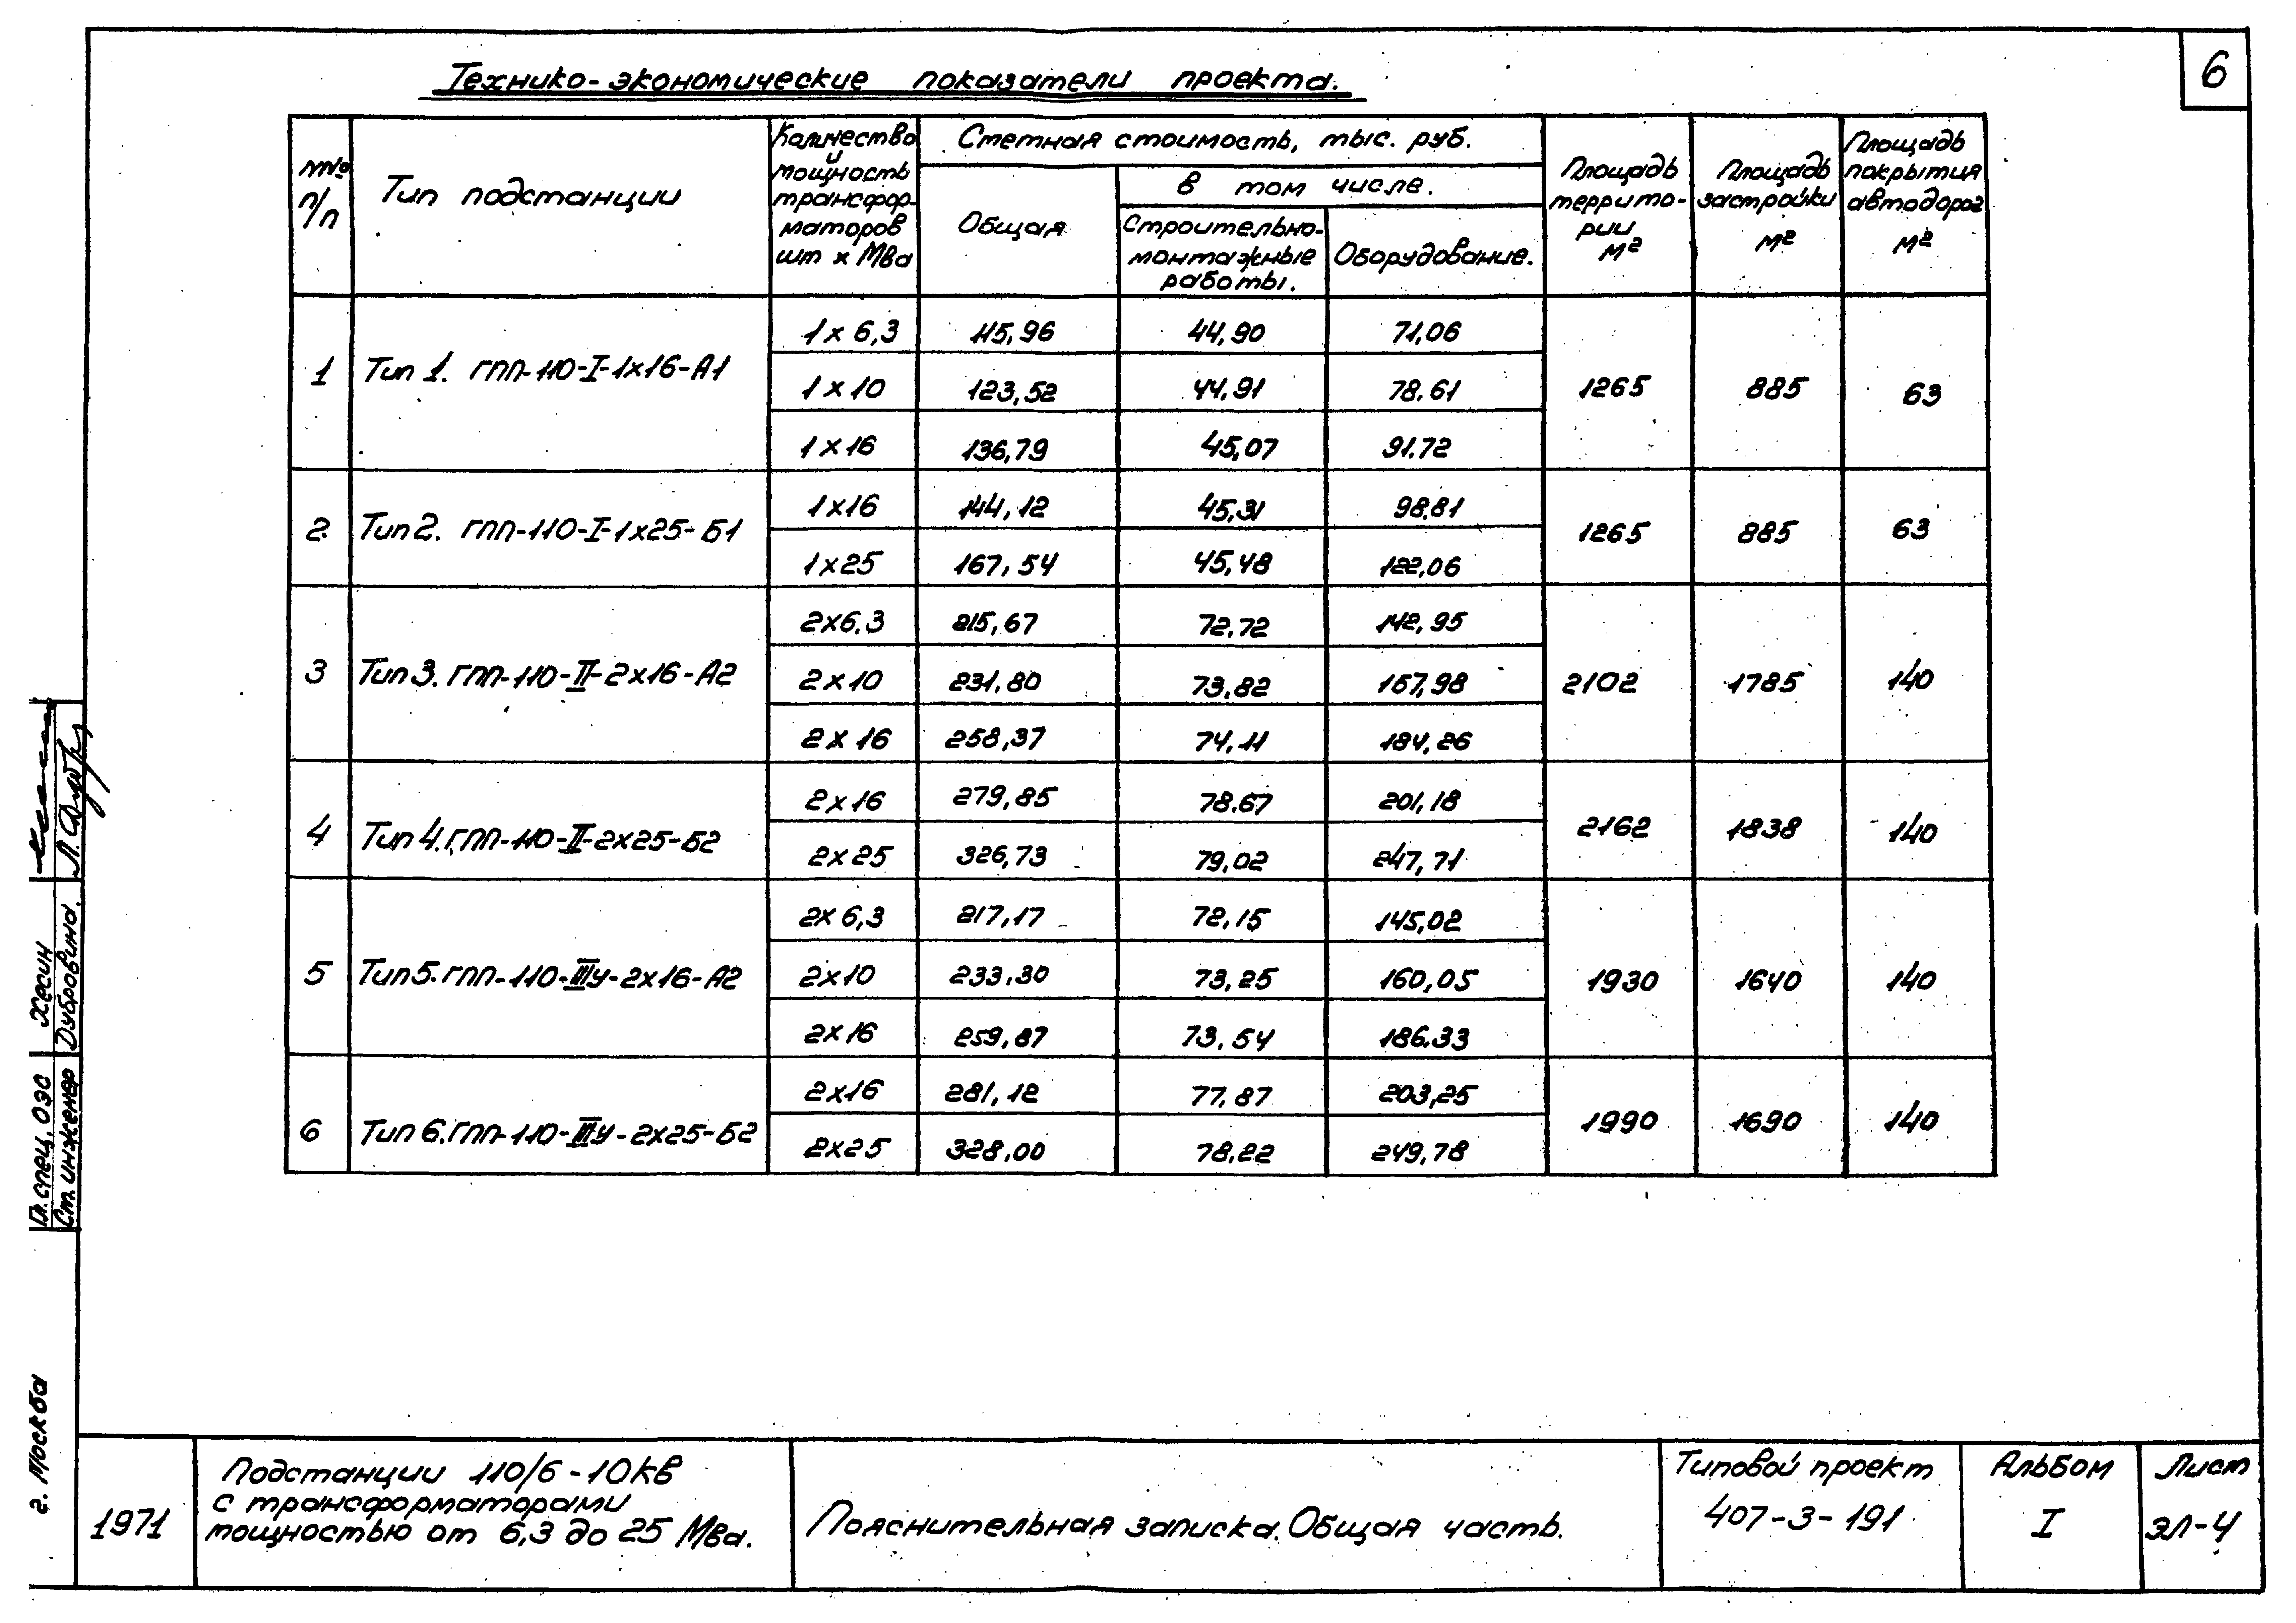 6
Технико-экономические показатели проекта.
№№ п/п
Тип подстанции
Количество и мощность трансформаторов шт х Мва
Сметная стоимость, тыс. руб.
Общая
в том числе.
Строительно-монтажные работы.
Оборудование.
Площадь территории м²
Площадь застройки м²
Площадь покрытия автодорог м²
1 Тип 1. ГПП-110-I-1х16-А1 1х6,3 115,96 44,90 71,06 1265 885 63
1х10 123,52 44,91 78.61
1х16 136,79 45,07 91.72
2. Тип 2. ГПП-110-I-1х25-Б1 1х16 144,12 45,31 98.81 1265 885 63
1х25 167,54 45,48 122,06
3 Тип 3. ГПП-110-II-2х16-А2 2х6,3 215,67 72,72 142,95 2102 1785 140
2х10 231,80 73,82 157,98
2х16 258,37 74,11 184,26
4 Тип 4. ГПП-110-II-2х25-Б2 2х16 279,85 78.67 201,18 2162 1838 140
2х25 326,73 79,02 247,71
5 Тип 5. ГПП-110-IIIу-2х16-А2 2х6,3 217,17 72,15 145,02 1930 1640 140
2х10 233,30 73,25 160,05
2х16 259,87 73,54 186.33
6 Тип 6. ГПП-110-IIIу-2х25-Б2 2х16 281,12 77,87 203,25 1990 1690 140
2х25 328,00 78,22 249,78
Гл. спец. ОЭС Хесин
Ст. инженер Дубровина.
г. Москва
1971
Подстанции 110/6-10кв
с трансформаторами
мощностью от 6,3 до 25 Мва.
Пояснительная записка. Общая часть.
Типовой проект
407-3-191
Альбом
I
Лист
ЭЛ-4